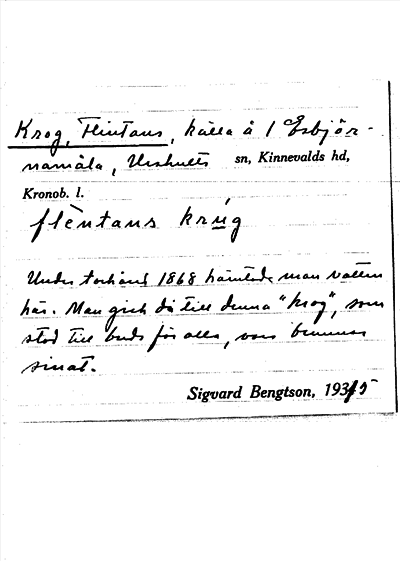 Krog, Flintans, källa å 1 Esbjör-
namåla, Urshults sn, Kinnevalds hd,
Kronob. l.
flèntans krúg
Under torkåret 1868 hämtade man vatten
här. Man gick då till denna "krog", som
stod till buds för alla, vars brunnar
sinat.
Sigvard Bengtson, 1935